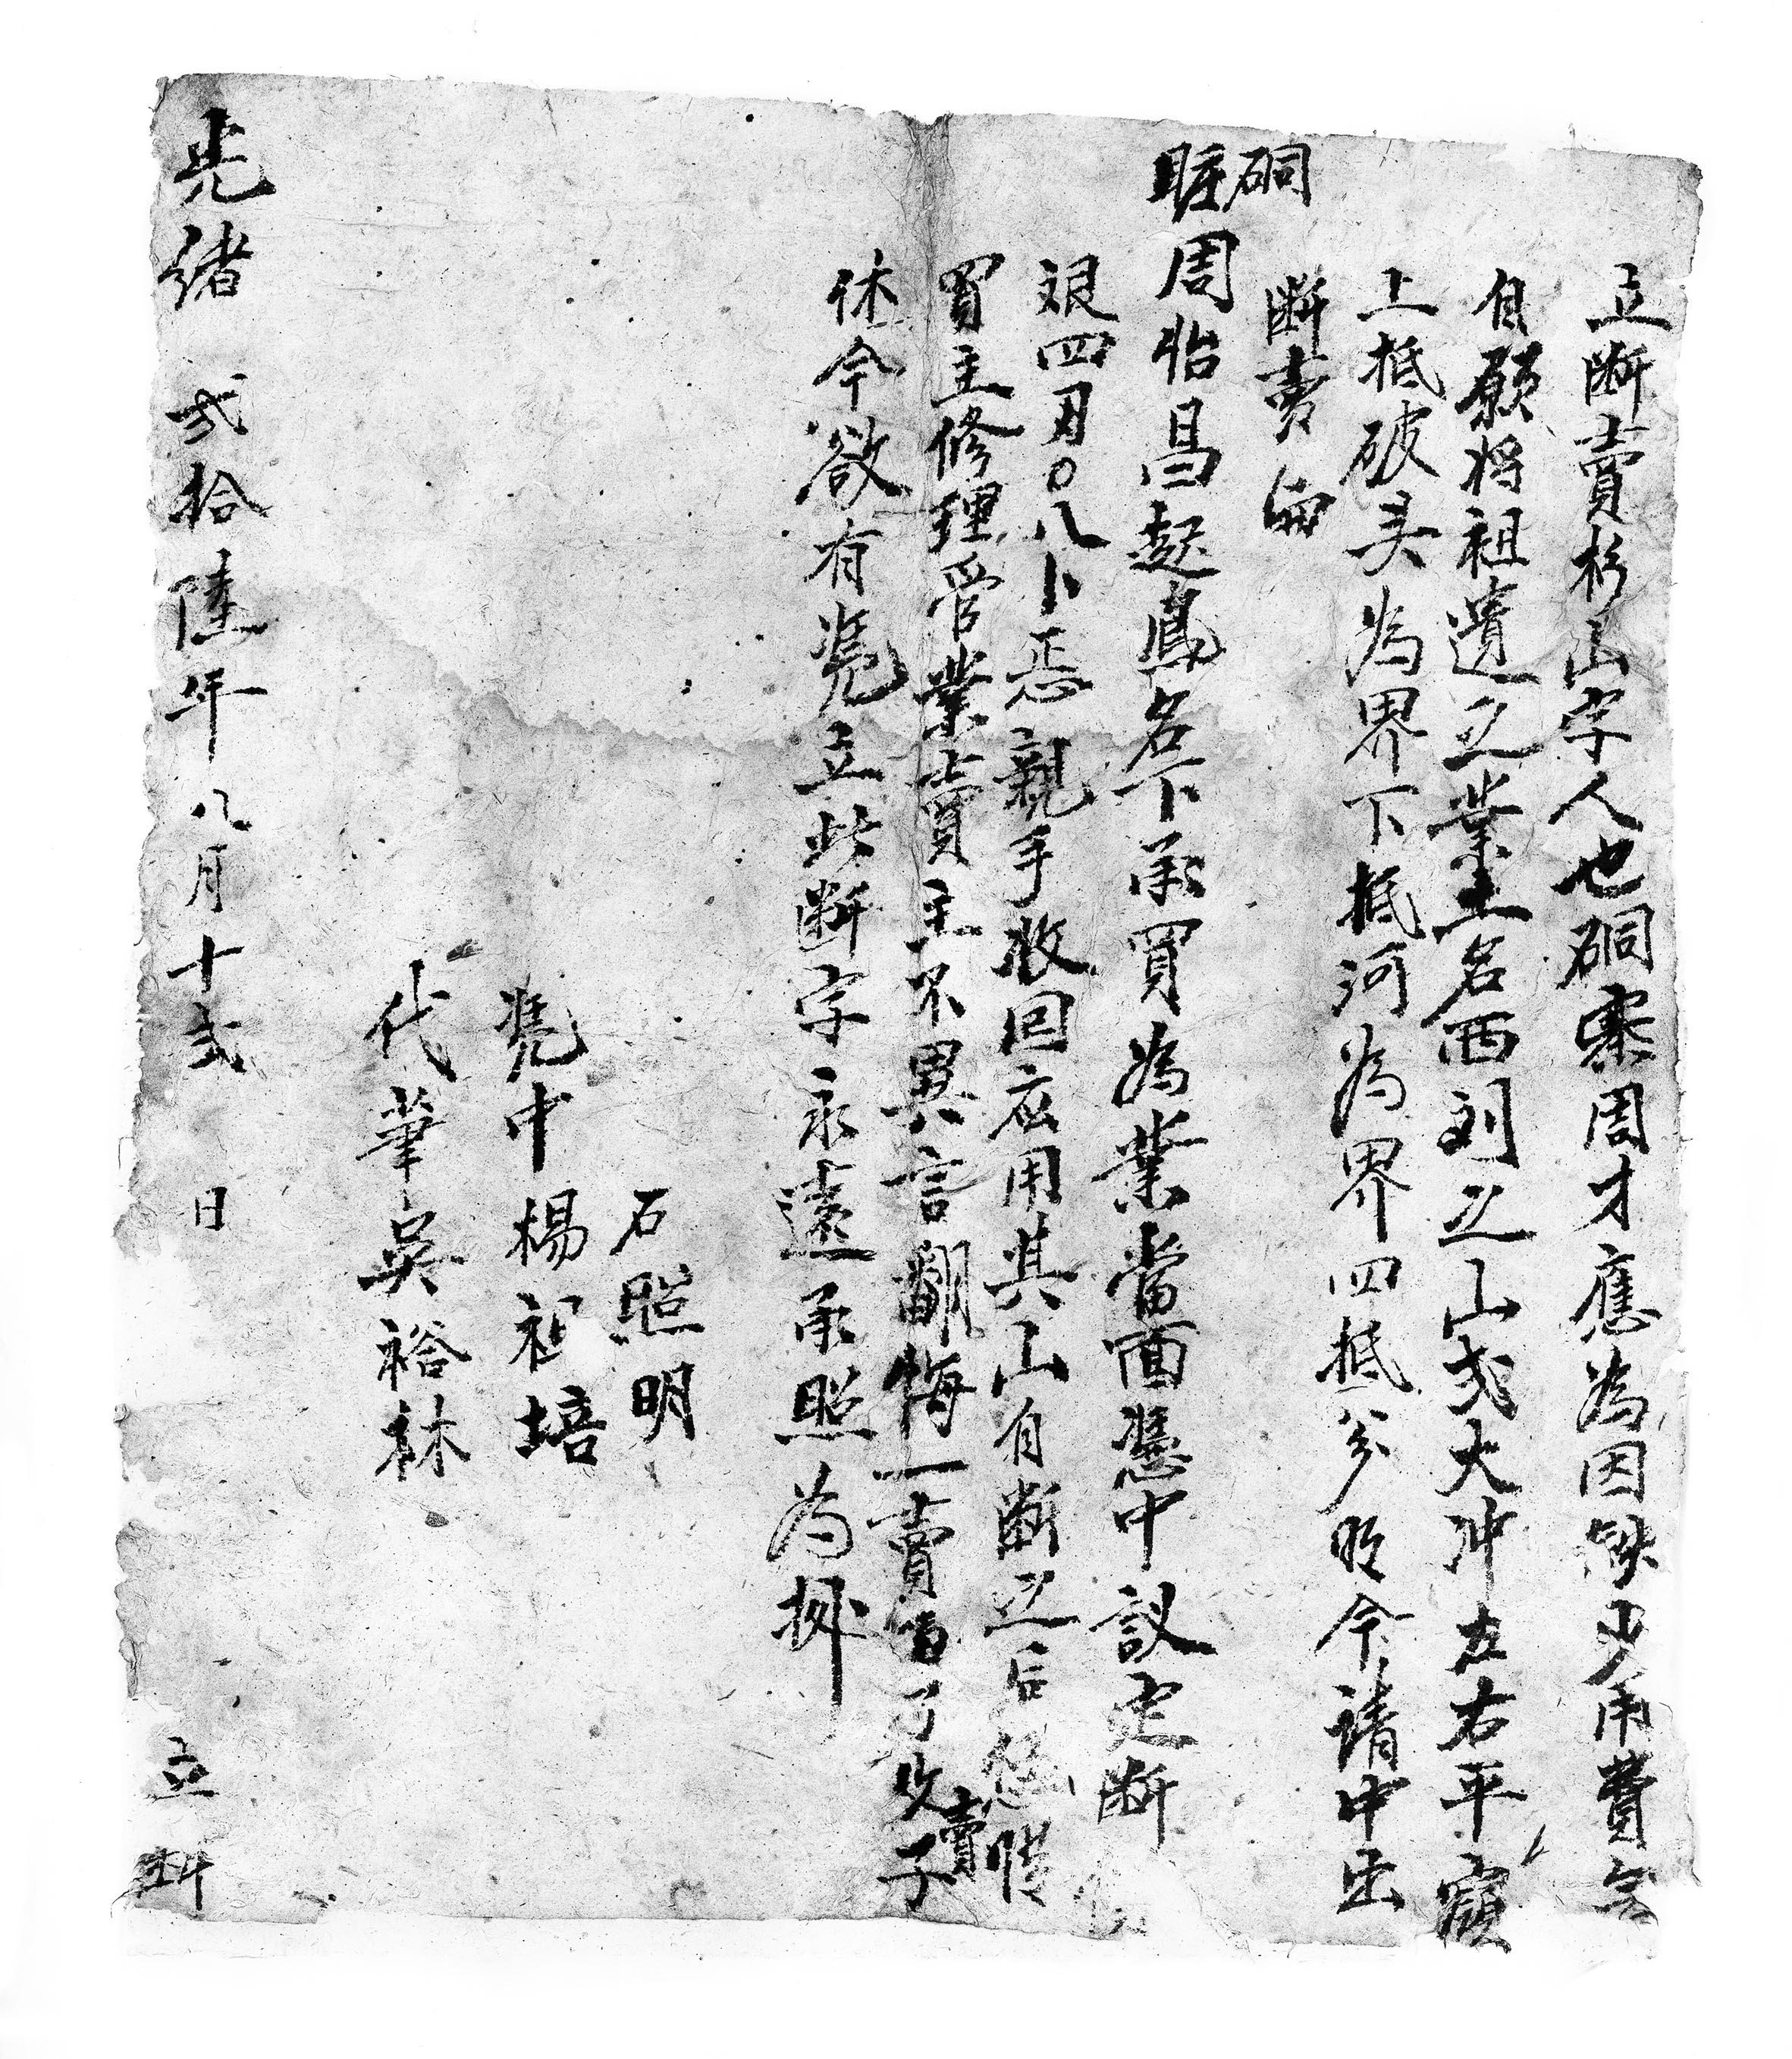 立断賣杉山字人也硐寨周才應為因缺少用費無
自願将祖遺之業土名西到之山弍大冲左右平嶺
上抵破头為界下抵河為界四抵分明今請中出
断賣與
硐
周怡昌起鳳名下承買為業當面憑中議定断
艮四刄〇八卜正親手收回应用其山自断之后任憑
買主修理管業賣主不異言翻悔一賣百了父賣子
休今欲有凴立此断字永遠承照為㨿
石照明
凴中楊祖培
代筆吳裕林
光緒弍拾陸年八月十弍日立